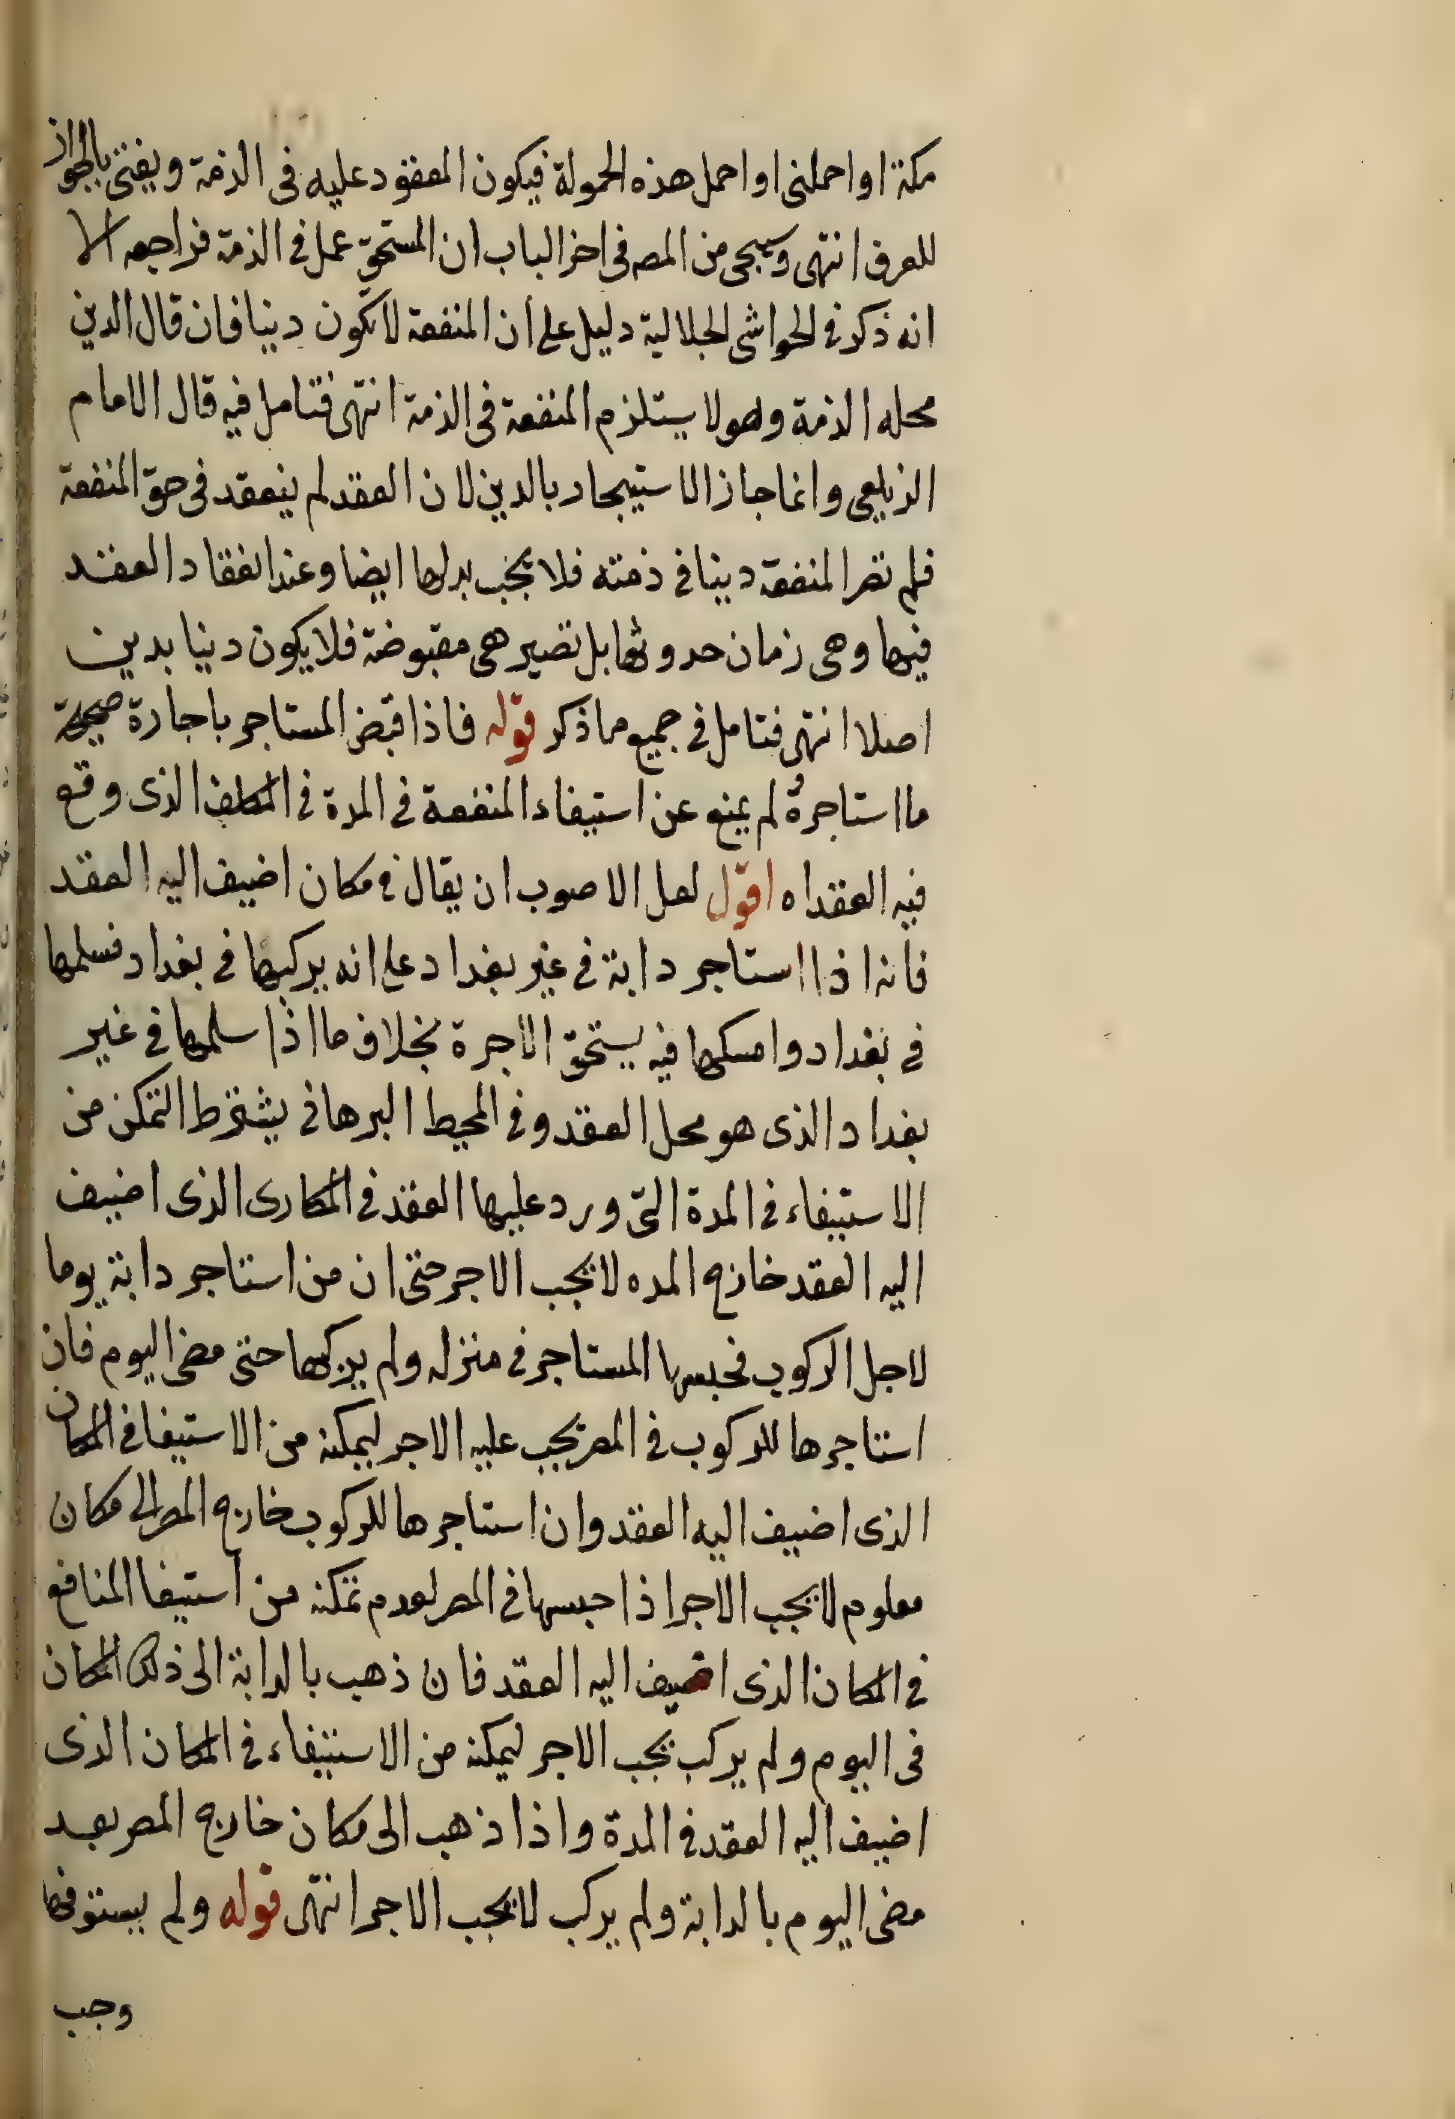 مكة او احملنى او احمل هذه الحمولة فيكون المعقود عليه فى الذمة ويفتى بالجواز
للعرف انتهى وسيجى من المصه فى اخر الباب ان المستحق عمل فى الذمة فراجعه الا
انه ذكر فى الحواشى الجلالية دليل على ان المنفعة لا تكون دينا فان قال الدين
محله الذمة وهو لا يستلزم المنفعة فى الذمة انتهى فتامل فيه قال الامام
الزيلعى وانما جاز الاستيجار بالدين لان العقد لم ينعقد فى حق المنفعة
فلم تصر المنفعة دينا فى ذمته فلا يجب بدلها ايضا وعند انعقاد العقد
فيها وهى زمان حدوثها بل تصير هى مقبوضة فلا يكون دينا بدين
اصلا انتهى فتامل فى جميع ما ذكر قوله فاذا قبض المستاجر باجارة صحيحة
ما استاجره لم يمنع عن استيفاء المنفعة فى المدة فى الذى وقع
فيه العقد اه اقول لعل الاصوب ان يقال فى مكان اضيف اليه العقد
فانه اذا استاجر دابة فى غير بغداد على انه يركبها فى بغداد فسلمها
فى بغداد وامسكها فيه يستحق الاجرة بخلاف ما اذا سلمها فى غير
بغداد الذى هو محل العقد وفى المحيط البرهانى يشترط التمكن من
الاستيفاء فى المدة التى ورد عليها العقد فى المكارى الذى اضيف
اليه العقد خارج المده لا يجب الاجر حتى ان من استاجر دابة يوما
لاجل الركوب فحبسها المستاجر فى منزله ولم يركبها حتى مضى اليوم فان
استاجرها للركوب فى المصر يجب عليه الاجر ليمكنه من الاستيفا فى المكان
الذى اضيف اليه العقد وان استاجرها للركوب خارج المصر الى مكان
معلوم لا يجب الاجر اذا حبسها فى المصر لعدم تمكنه من استيفا المنافع
فى المكان الذى اضيف اليه العقد فان ذهب بالدابة الى ذلك المكان
فى اليوم ولم يركب يجب الاجر ليمكنه من الاستيفاء فى المكان الذى
اضيف اليه العقد فى المدة واذا ذهب الى مكان خارج المصر بعد
مضى اليوم بالدابة ولم يركب لا يجب الاجر انتهى قوله ولم يستوفها
وجب